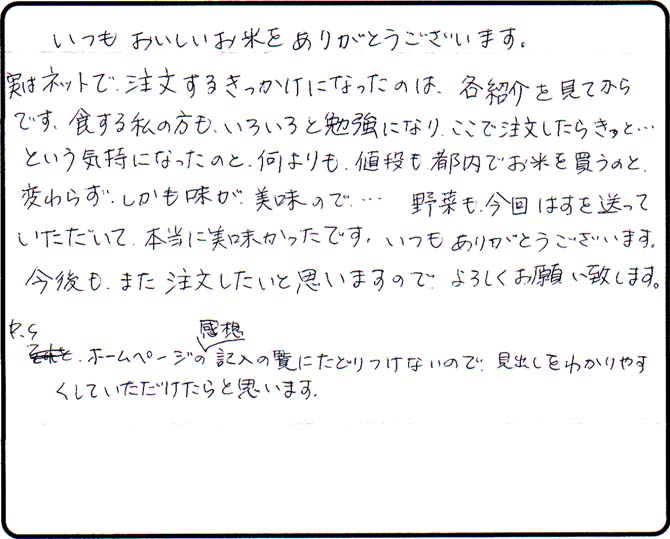 いつも おいしいお米を ありがとうございます。
実はネットで、注文するきっかけになったのは、各紹介を見てから
です、食する私の方も、いろいろと勉強になり、ここで注文したらきっと…
という気持になったのと、何よりも、値段も都内でお米を買うのと、
変わらず、しかも味が、美味ので、… 野菜も、今回はすを送って
いただいて、本当に美味かったです。いつもありがとうございます。
今後も、また注文したいと思いますので、よろしくお願い致します。
P.S
感想
、ホームページの記入の覧にたどりつけないので、見出しをわかりやす
くしていただけたらと思います。